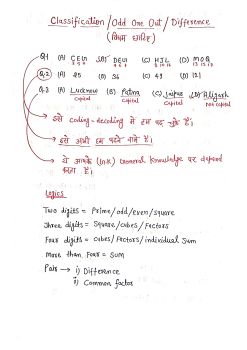 Classification/Odd One Out/Difference
(विषम घटित)
Q.1 (A) CEGI (B) DEGI (C) HJL (D) MOQ
Q.2 (A) 25 (B) 36 (C) 49 (D) 121
Q.3 (A) Lucknow (B) Patna (C) Jaipur (D) Aligarh
Capital Capital Capital Not capital
इसे coding-decoding में हम पढ़ चुके हैं।
इसे अभी हम पढ़ने वाले हैं।
ये आपके (G.K) General Knowledge पर depend करता है।
Logics
Two digits = Prime/odd/even/square
Three digits = Square/cubes/Factors
Four digits = cubes/Factors/individual Sum
More than Four = Sum
Pair → i) Difference
ii) Common factor